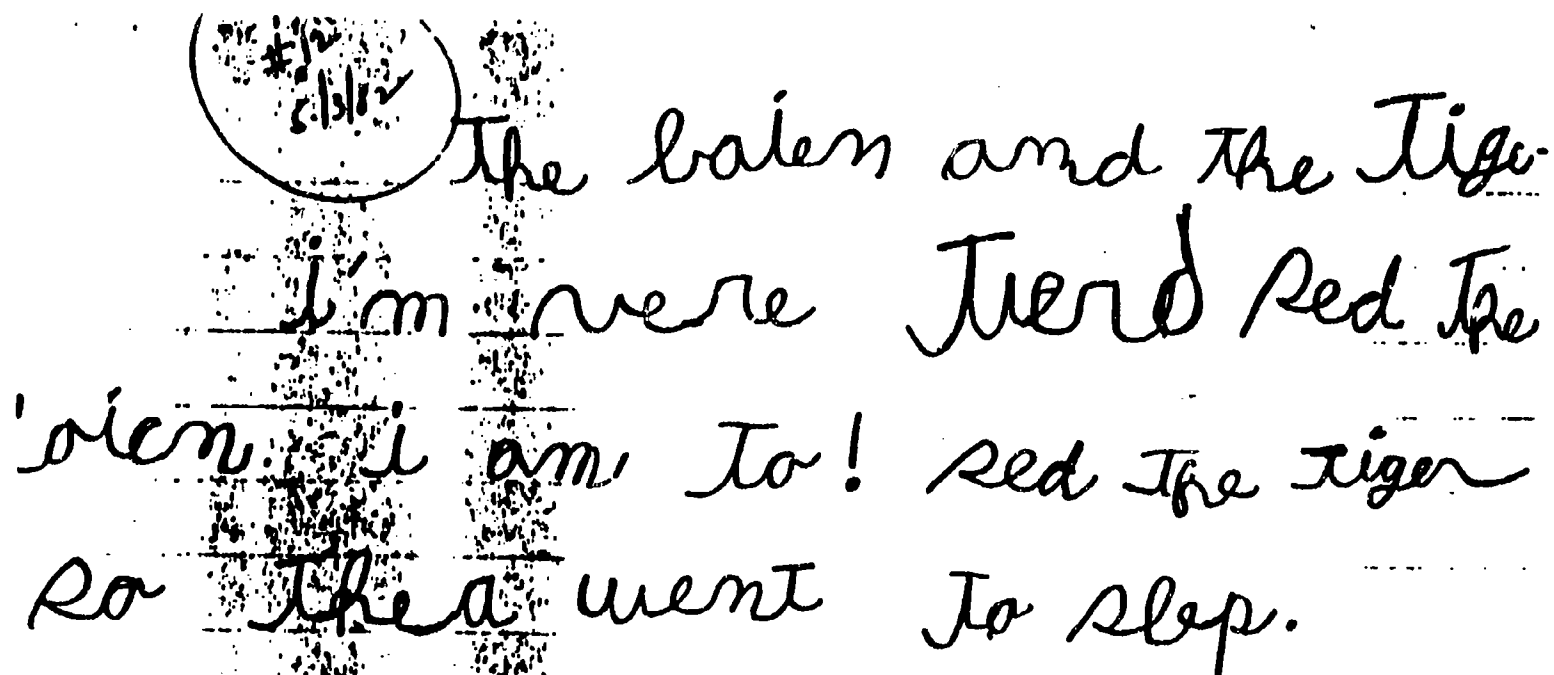 #12
5/3/82
The baien and the Tiger
i'm vere Tierd sed the
oien. i am to! sed the tiger
so thea went to slep.